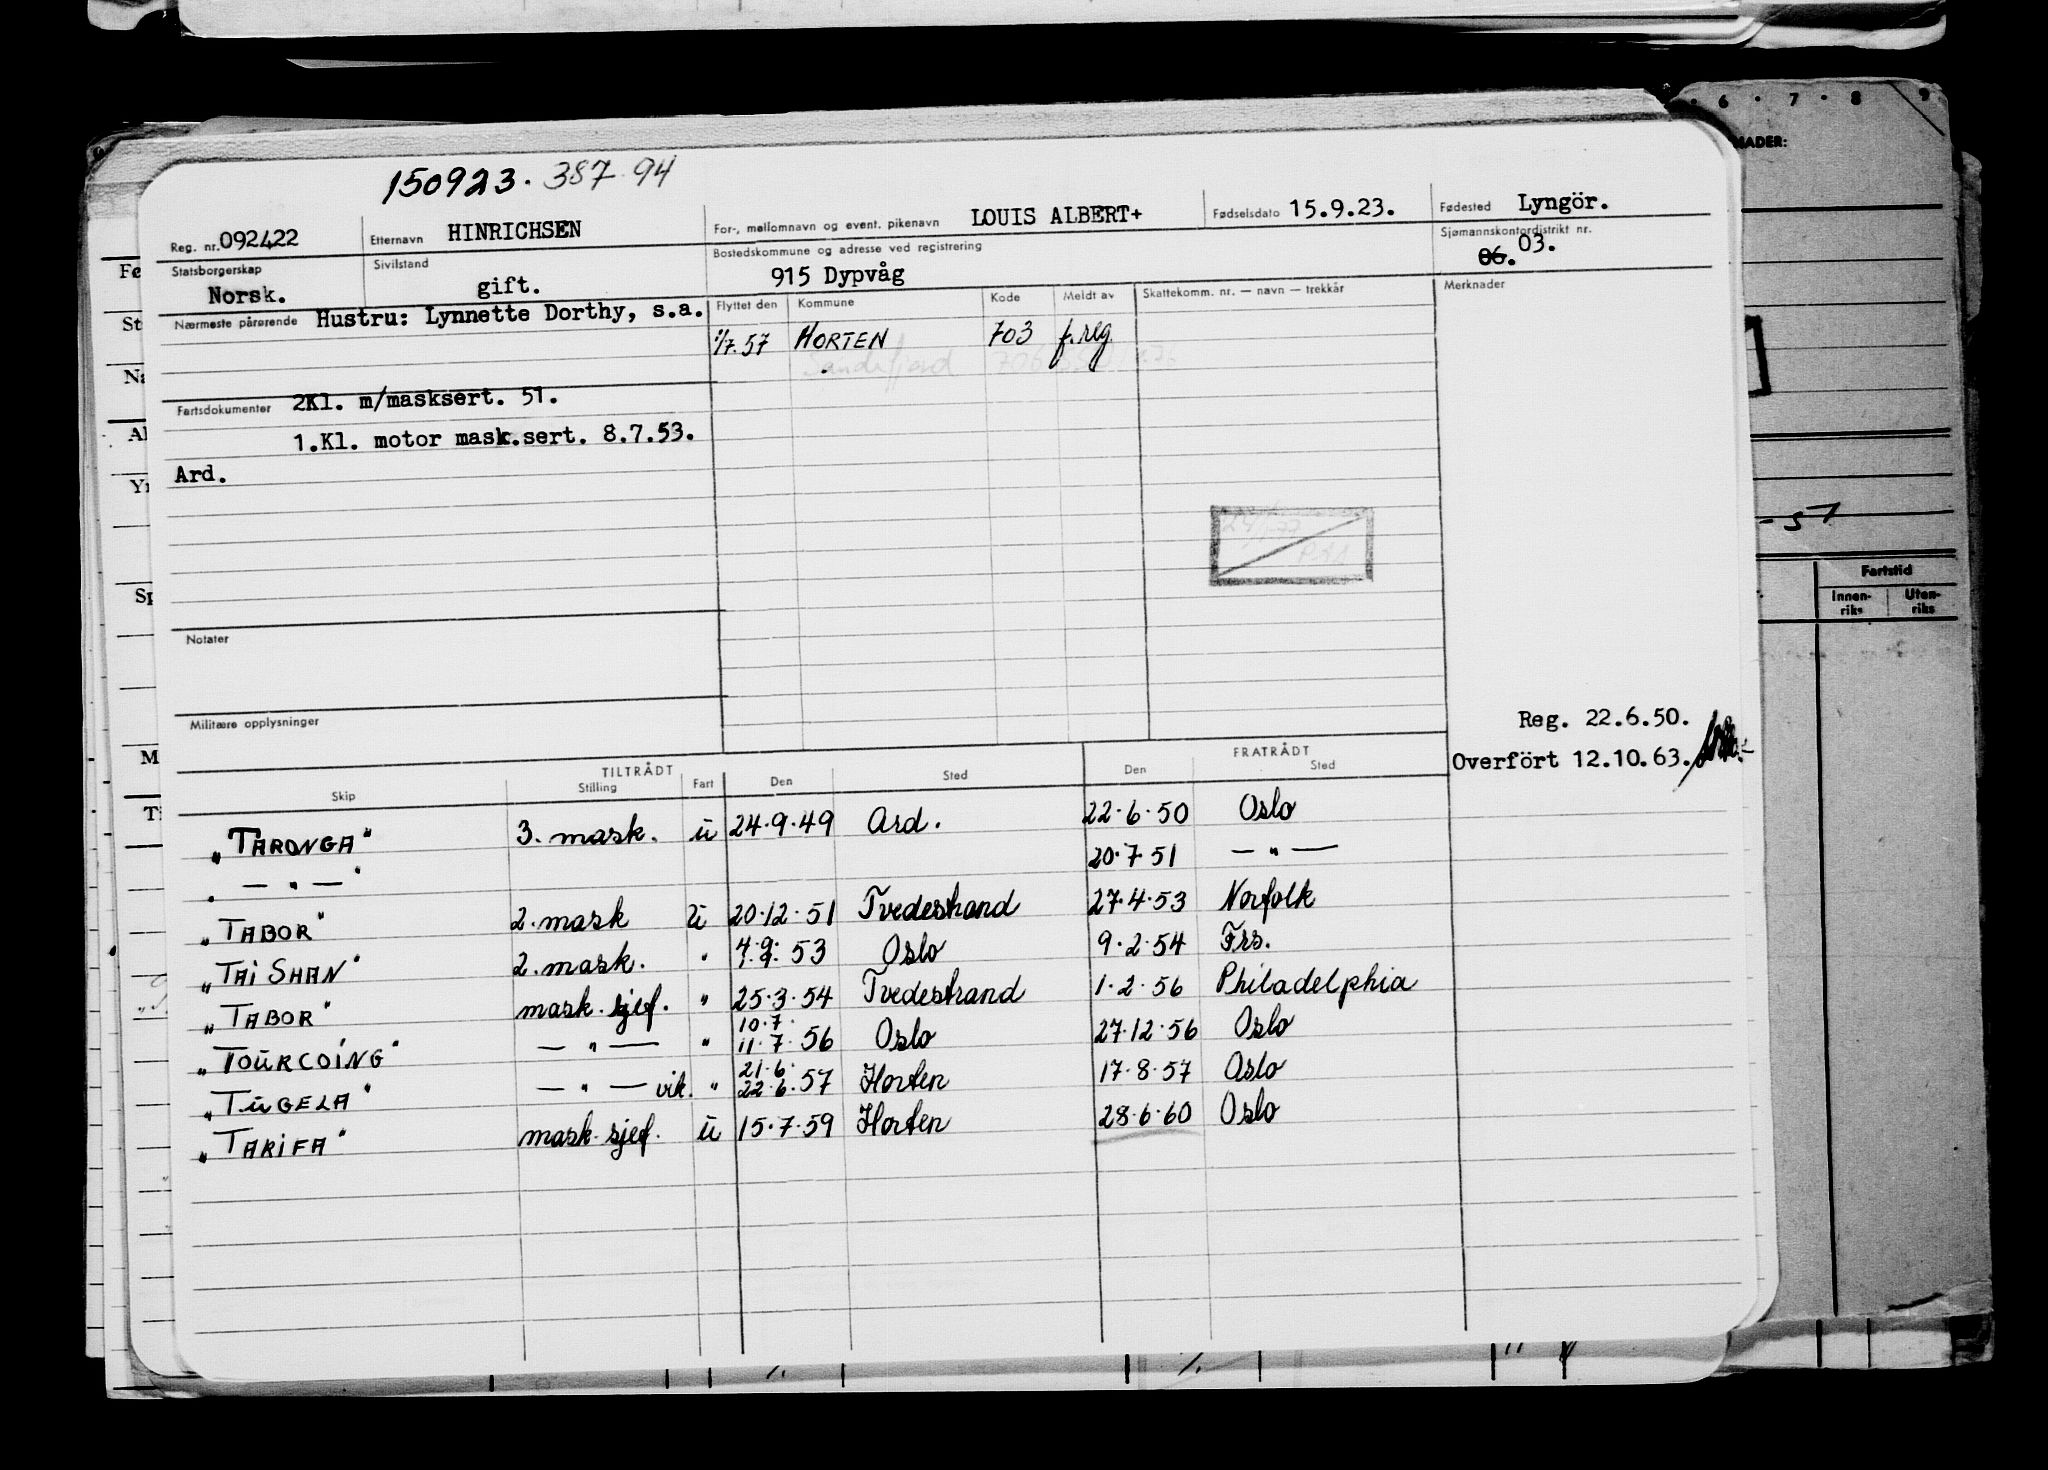 150923. 387 94
Reg. nr. 092422 Etternavn HINRICHSEN For-, mellomnavn og event. pikenavn LOUIS ALBERT+ Fødselsdato 15.9.23. Fødested Lyngör.
Statsborgerskap Norsk. Sivilstand gift. Bostedskommune og adresse ved registrering 915 Dypvåg Sjømannskontordistrikt nr. 06. 03.
Nærmeste pårørende Hustru: Lynnette Dorthy, s.a. Flyttet den Kommune Kode Meldt av Skattekomm. nr. — navn — trekkår Merknader
1/7.57 HORTEN 703 f.reg.
Sandefjord 706
Fartsdokumenter 2Kl. m/masksert. 51.
1.Kl. motor mask.sert. 8.7.53.
Ard.
Notater
Militære opplysninger
Reg. 22.6.50.
Overfört 12.10.63.
TILTRÅDT FRATRÅDT
Skip Stilling Fart Den Sted Den Sted
"TARONGA" 3. mask. ū 24.9.49 Ard. 22.6.50 Oslo
" — " — " 20.7.51 — " —
"TABOR" 2. mask ū 20.12.51 Tvedestrand 27.4.53 Norfolk
"TAI SHAN" 2. mask. " 4.9. 1.9. 53 Oslo 9.2.54 Frs.
"TABOR" mask. sjef. " 25.3.54 Tvedestrand 1.2.56 Philadelphia
"TOURCOING" — " — " 10.7. 11.7.56 Oslo 27.12.56 Oslo
"TUGELA" — " — vik. " 21.6. 22.6.57 Horten 17.8.57 Oslo
"TARIFA" mask. sjef. ū 15.7.59 Horten 28.6.60 Oslo
6 7 8 9
NADER:
- 57
Fartstid
Innen-riks Uten-riks